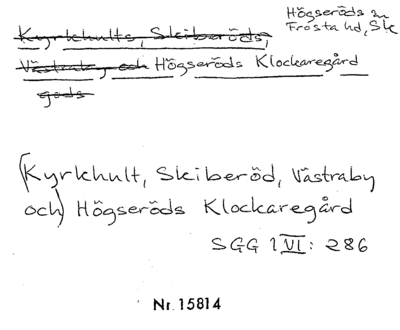 Högseröds sn
Frosta hd, Sk
Kyrkhults, Skiberöds,
Västraby, och Högseröds Klockaregård
gods
(Kyrkhult, Skiberöd, Västraby
och) Högseröds Klockaregård
SGG 1 VI: 286
Nr. 15814